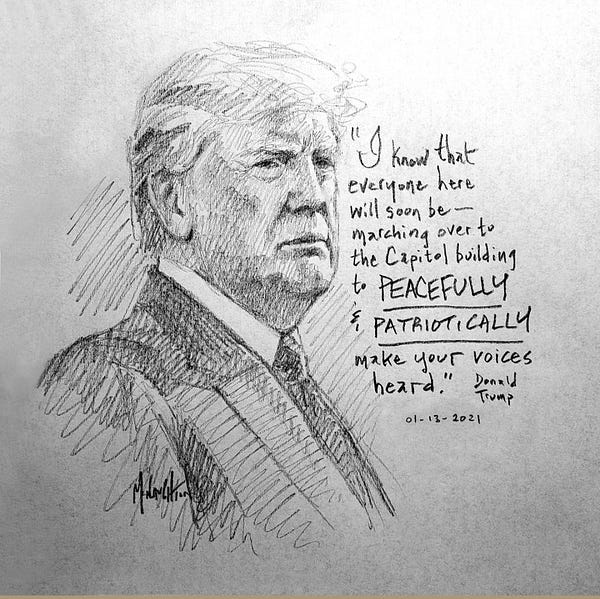 "I know that
everyone here
will soon be —
marching over to
the Capitol building
to PEACEFULLY
& PATRIOTICALLY
make your voices
heard." Donald
Trump
01-13-2021
McNaughton